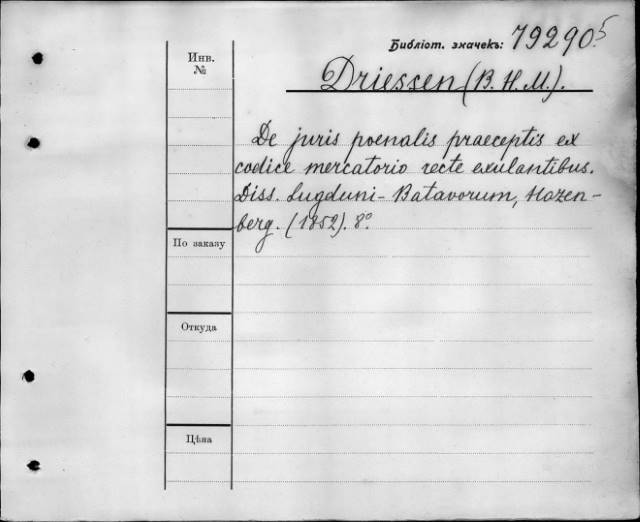 Библіот. значекъ: 79290.5
Инв.
№
Driessen (B. H. M.).
De juris poenalis praeceptis ex
codice mercatorio recte exulantibus.
Diss. Lugduni-Batavorum, Hazen-
berg. (1852). 8º.
По заказу
Откуда
Цѣна